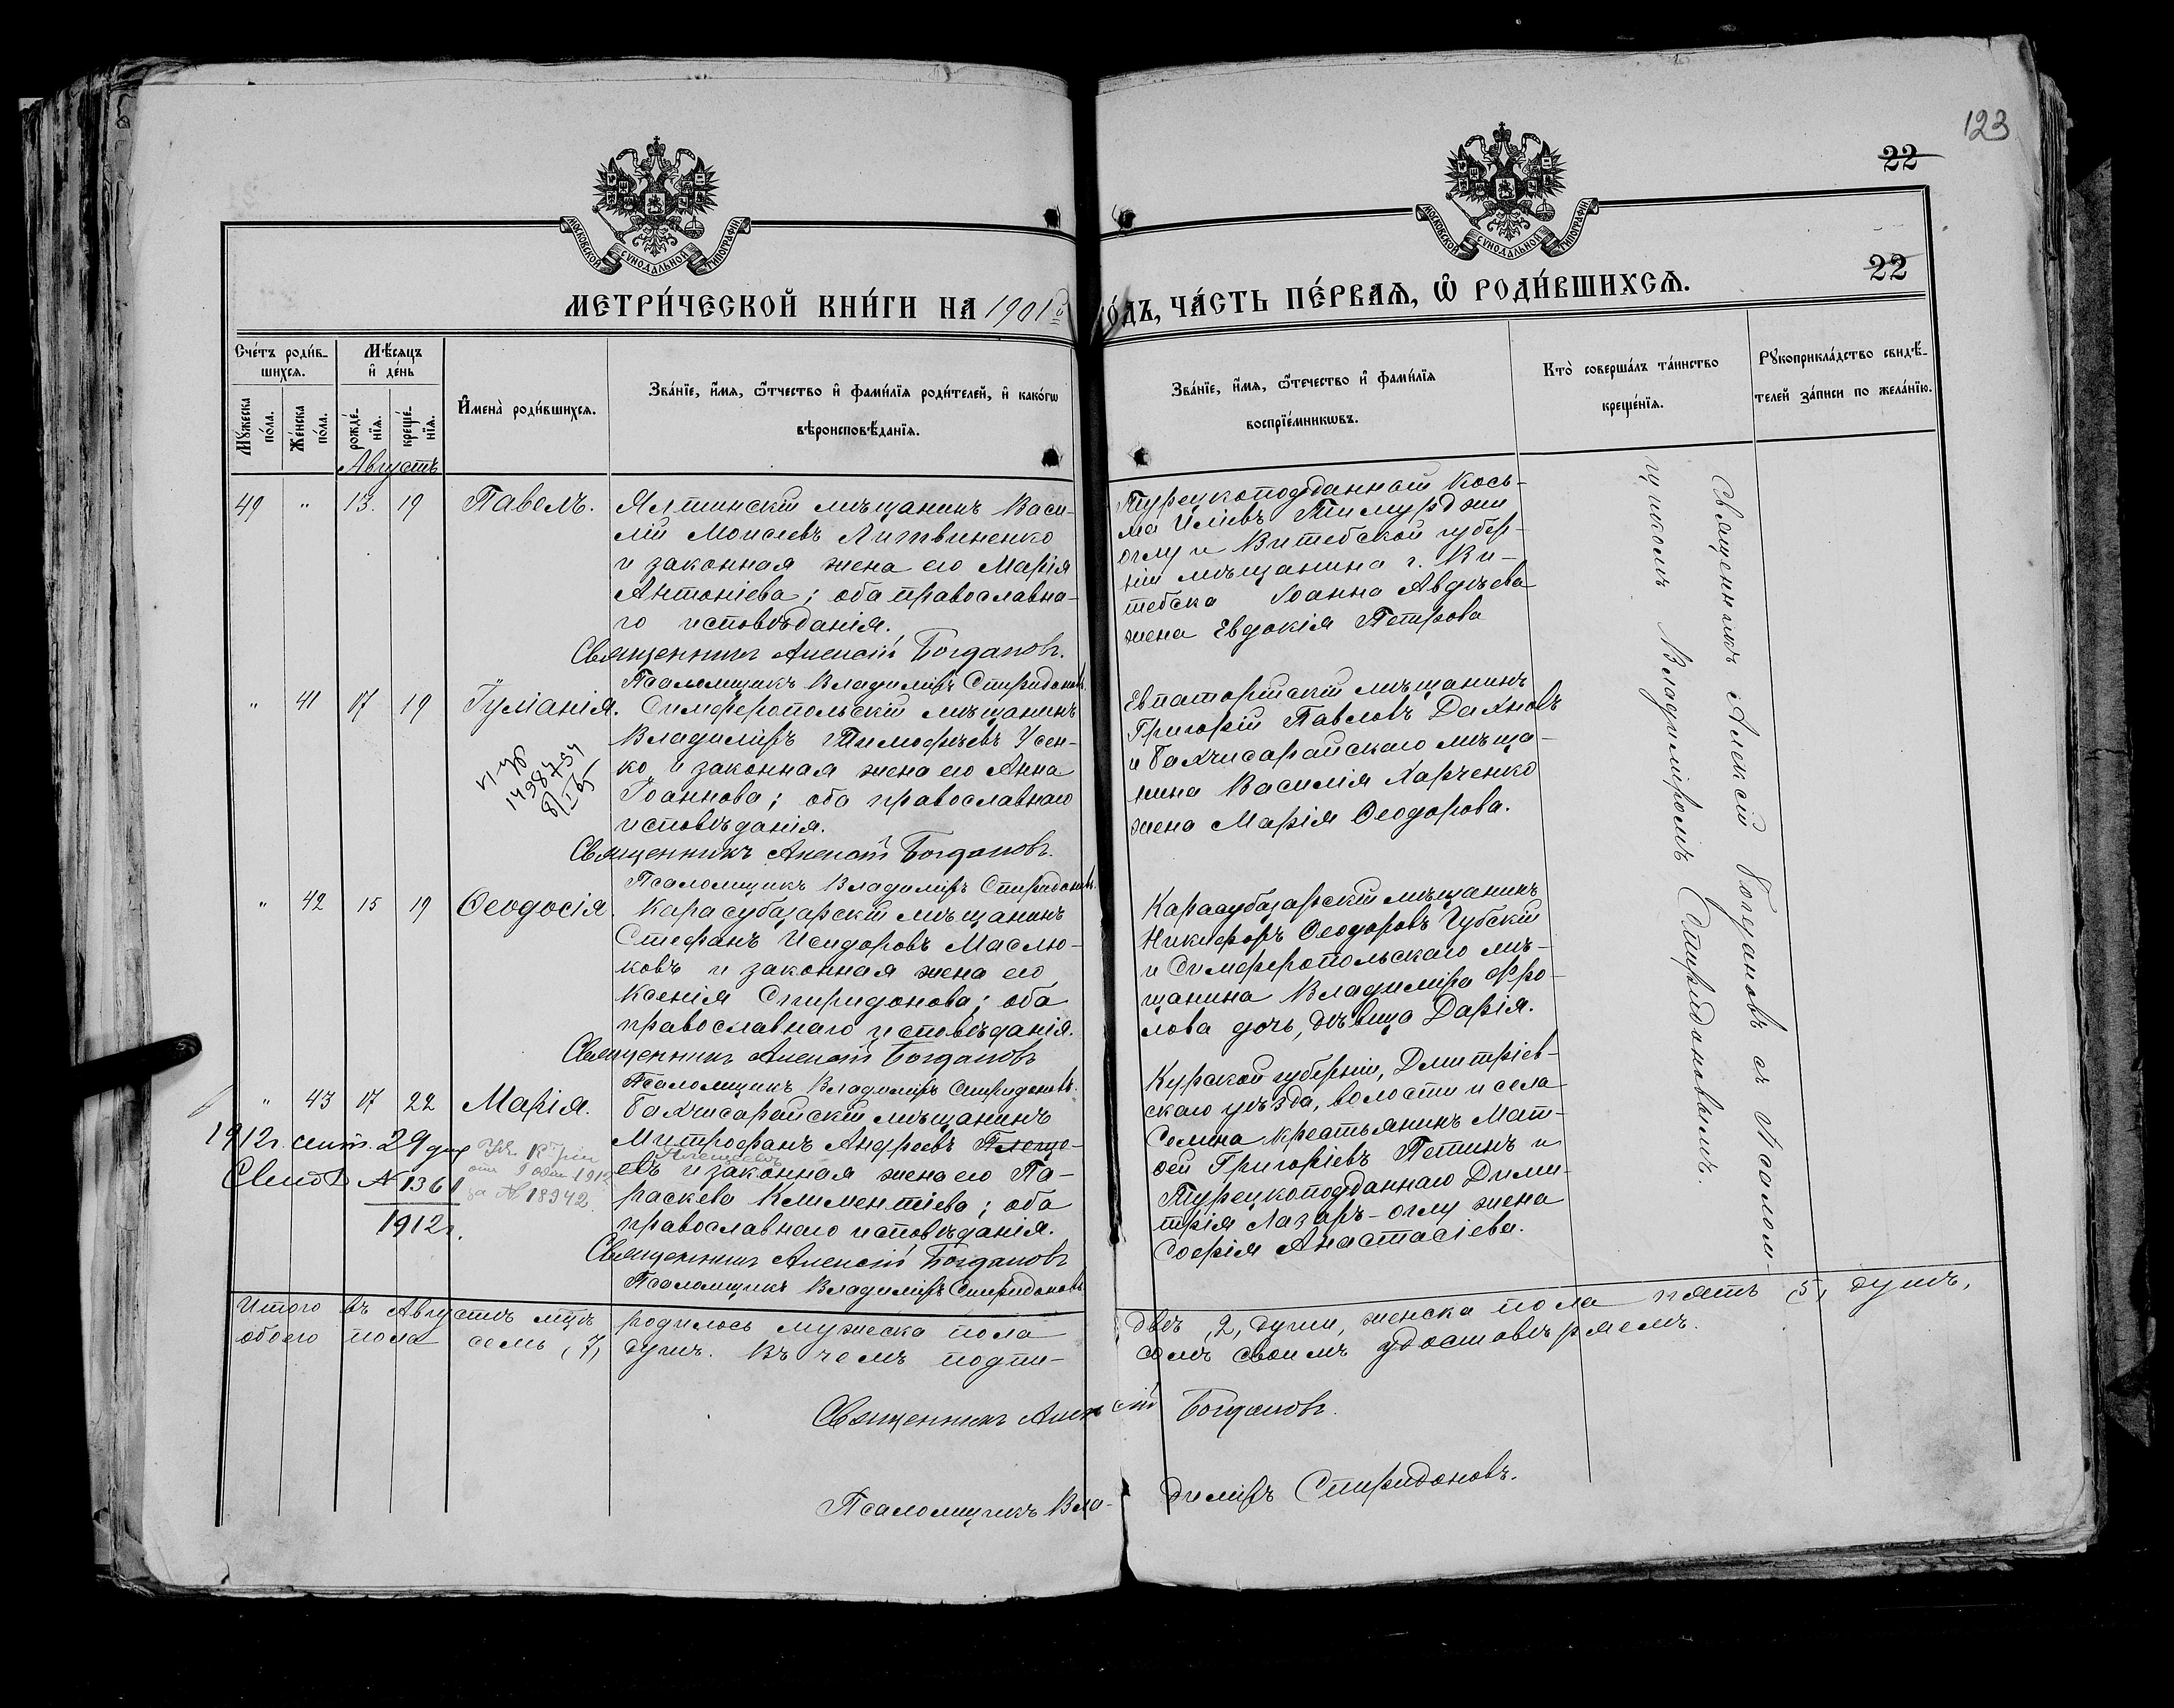 123
22
22
МОСКОВСКОЙ СѴНОДАЛЬНОЙ ТИПОГРАФІИ
МОСКОВСКОЙ СѴНОДАЛЬНОЙ ТИПОГРАФІИ
МЕТРИ́ЧЕСКОЙ КНИ́ГИ НА 1901й
О́ДЪ, ЧА́СТЬ ПЕ́РВАѦ, Ѽ РОДИ́ВШИХСѦ.
Сче́тъ роди́в-
шихсѧ.
Мꙋ́жеска по́ла.
Же́нска по́ла.
Мѣ́сѧцъ
и҆ де́нь
рожде́-нїѧ.
креще́-нїѧ.
И҆мена̀ роди́вшихсѧ.
Зва́нїе, и҆́мѧ, ѻ҆́тчество и҆ фами́лїѧ роди́телей, и҆ како́гѡ
вѣроисповѣ́данїѧ.
Зва́нїе, и҆́мѧ, ѻ҆́течество и҆ фами́лїѧ
воспрїе́мникѡвъ.
Кто̀ соверша́лъ та́инство
креще́нїѧ.
Рꙋкоприкла́дство свидѣ́-
телей за́писи по жела́нїю.
Августъ
49 " 13. 19 Павелъ.
Ялтинскій мѣщанинъ Васи-
лій Моисеевъ Литвиненко
и законная жена его Марія
Антоніева; оба православна-
го исповѣданія.
Священникъ Алексій Богдановъ.
Псаломщикъ Владиміръ Спиридоновъ.
Турецкоподданный Кось-
ма Иліевъ Тимурджи
оглу и Витебской губер-
ніи мѣщанина г. Ви-
тебска Іоанна Авдѣева
жена Евдокія Петрова
" 41 17 19 Іуліанія.
Симферопольскій мѣщанинъ
Владиміръ Тимофѣевъ Усен-
ко и законная жена его Анна
Іоаннова; оба православнаго
исповѣданія.
Священникъ Алексій Богдановъ.
Псаломщикъ Владиміръ Спиридоновъ.
Евпаторійскій мѣщанинъ
Григорій Павловъ Дахновъ
и Бахчисарайскаго мѣща-
нина Василія Харченко
жена Марія Ѳеодорова.
" 42 15 19 Ѳеодосія.
Карасубазарскій мѣщанинъ
Стефанъ Исидоровъ Маслю-
ковъ и законная жена его
Ксенія Спиридонова; оба
православнаго исповѣданія.
Священникъ Алексій Богдановъ
Псаломщикъ Владиміръ Спиридоновъ.
Карасубазарскій мѣщанинъ
Никифоръ Ѳеодоровъ Губскій
и Симферопольскаго мѣ-
щанина Владиміра Фро-
лова дочь, дѣвица Дарія.
" 43 17 22 Марія.
Бахчисарайскій мѣщанинъ
Митрофанъ Андреевъ Плеще-
Плещеевъ
евъ и законная жена его Па-
раскева Климентіева; оба
православнаго исповѣданія.
Священникъ Алексій Богдановъ
Псаломщикъ Владиміръ Спиридоновъ.
1912г. сент. 29 дня
№ 1361
1912г.
1912
за № 18942.
Курской губерніи, Дмитріев-
скаго уѣзда, волости и села
Селина крестьянинъ Мат-
ѳей Григоріевъ Петинъ и
Турецкоподданнаго Дими-
трія Лазаръ-оглу жена
Софія Анастасіева.
Священникъ Алексій Богдановъ съ псалом-
щикомъ Владиміромъ Спиридоновымъ.
Итого въ Августѣ мцѣ родилось мужеска пола двѣ, 2, души, женска пола пять, 5, душъ,
обоего пола семь, 7, душъ. Въ чемъ подпи- сомъ своимъ удостовѣряемъ.
Священникъ Алексій Богдановъ.
Псаломщикъ Вла- диміръ Спиридоновъ.